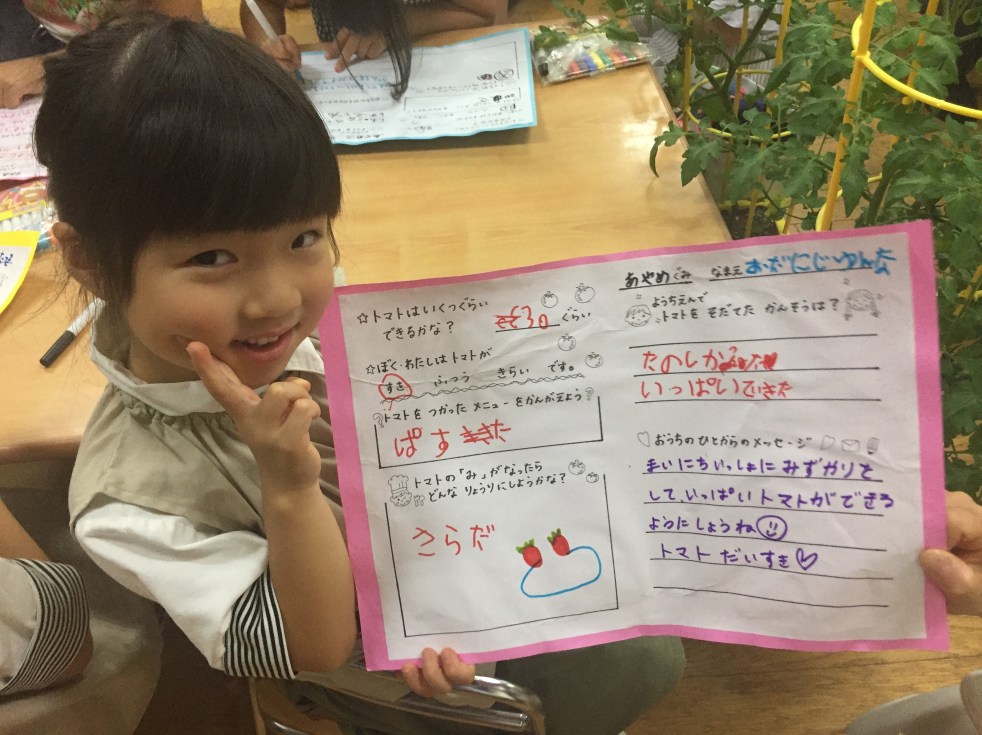 ☆トマトはいくつぐらい
できるかな？ 30 ぐらい
☆ぼく・わたしはトマトが
すき ふつう きらい です。
トマトを つかった メニューを かんがえよう
ぱすた
トマトの「み」がなったら
どんな りょうりにしようかな？
さらだ
あやめぐみ なまえ
ようちえんで
トマトを そだてた かんそうは？
たのしかった
いっぱいできた
おうちのひとからのメッセージ
まいにちいっしょに みずやりを
して、いっぱい トマトができる
ようにしようね
トマト だいすき♡